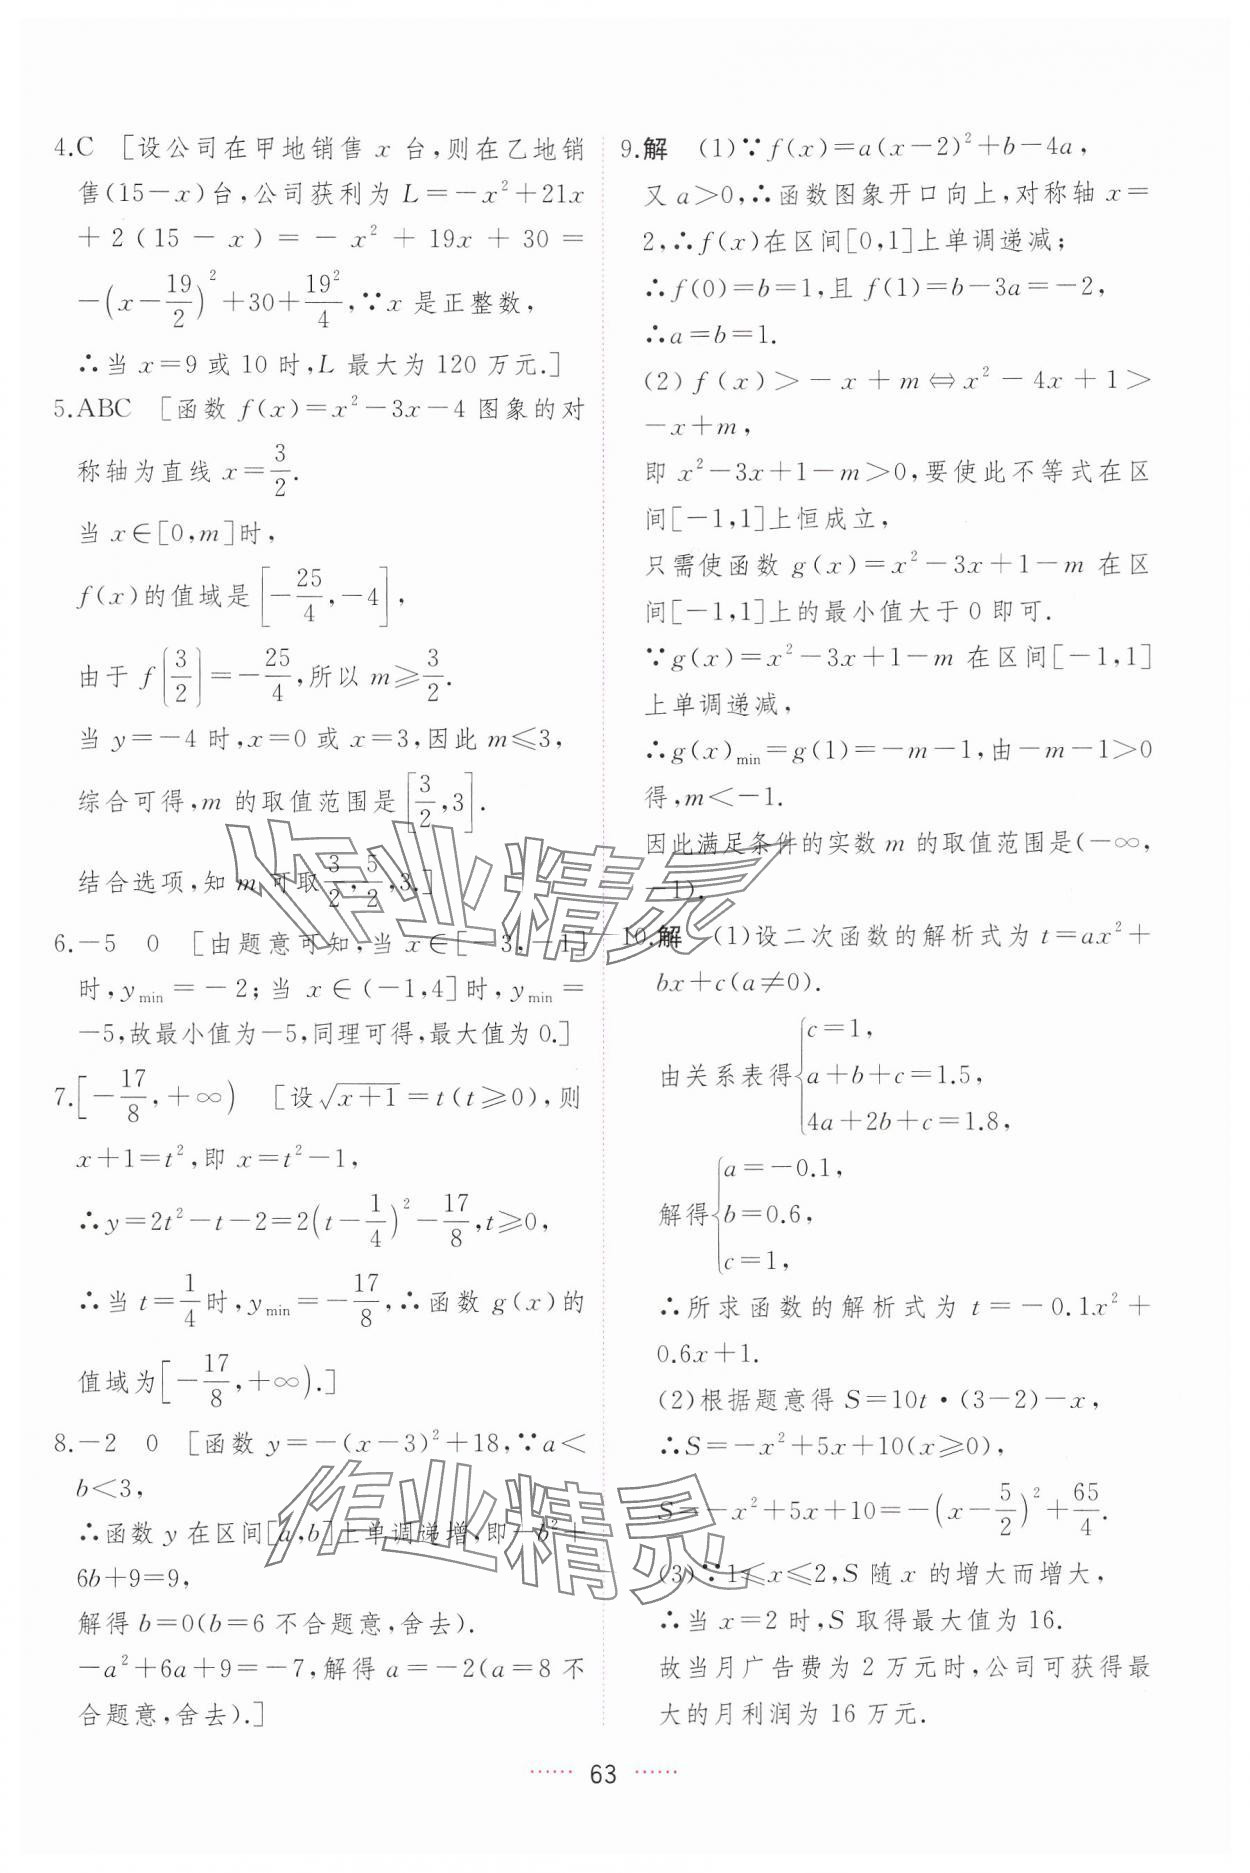 4.C [设公司在甲地销售 x 台,则在乙地销
售(15-x)台,公司获利为 L=-x²+21x
+2(15-x)=-x²+19x+30=
-(x-19/2)²+30+19²/4,∵x 是正整数,
∴当 x=9 或 10 时,L 最大为 120 万元.]
5.ABC [函数 f(x)=x²-3x-4 图象的对
称轴为直线 x=3/2.
当 x∈[0,m]时,
f(x)的值域是[-25/4,-4],
由于 f(3/2)=-25/4,所以 m≥3/2.
当 y=-4 时,x=0 或 x=3,因此 m≤3,
综合可得,m 的取值范围是[3/2,3].
结合选项,知 m 可取3/2,5/2,3.]
6.-5 0 [由题意可知,当 x∈[-3,-1]
时,y min=-2;当 x∈(-1,4]时,y min=
-5,故最小值为-5,同理可得,最大值为 0.]
7.[-17/8,+∞) [设√(x+1)=t(t≥0),则
x+1=t²,即 x=t²-1,
∴y=2t²-t-2=2(t-1/4)²-17/8,t≥0,
∴当 t=1/4时,y min=-17/8,∴函数 g(x)的
值域为[-17/8,+∞).]
8.-2 0 [函数 y=-(x-3)²+18,∵a<
b<3,
∴函数 y 在区间[a,b]上单调递增,即-b²+
6b+9=9,
解得 b=0(b=6 不合题意,舍去).
-a²+6a+9=-7,解得 a=-2(a=8 不
合题意,舍去).]
9.解 (1)∵f(x)=a(x-2)²+b-4a,
又 a>0,∴函数图象开口向上,对称轴 x=
2,∴f(x)在区间[0,1]上单调递减;
∴f(0)=b=1,且 f(1)=b-3a=-2,
∴a=b=1.
(2)f(x)>-x+m⇔x²-4x+1>
-x+m,
即 x²-3x+1-m>0,要使此不等式在区
间[-1,1]上恒成立,
只需使函数 g(x)=x²-3x+1-m 在区
间[-1,1]上的最小值大于 0 即可.
∵g(x)=x²-3x+1-m 在区间[-1,1]
上单调递减,
∴g(x)min=g(1)=-m-1,由-m-1>0
得,m<-1.
因此满足条件的实数 m 的取值范围是(-∞,
-1).
10.解 (1)设二次函数的解析式为 t=ax²+
bx+c(a≠0).
由关系表得{c=1,
a+b+c=1.5,
4a+2b+c=1.8,
解得{a=-0.1,
b=0.6,
c=1,
∴所求函数的解析式为 t=-0.1x²+
0.6x+1.
(2)根据题意得 S=10t·(3-2)-x,
∴S=-x²+5x+10(x≥0),
S=-x²+5x+10=-(x-5/2)²+65/4.
(3)∵1≤x≤2,S 随 x 的增大而增大,
∴当 x=2 时,S 取得最大值为 16.
故当月广告费为 2 万元时,公司可获得最
大的月利润为 16 万元.
······ 63 ······
作业精灵
作业精灵